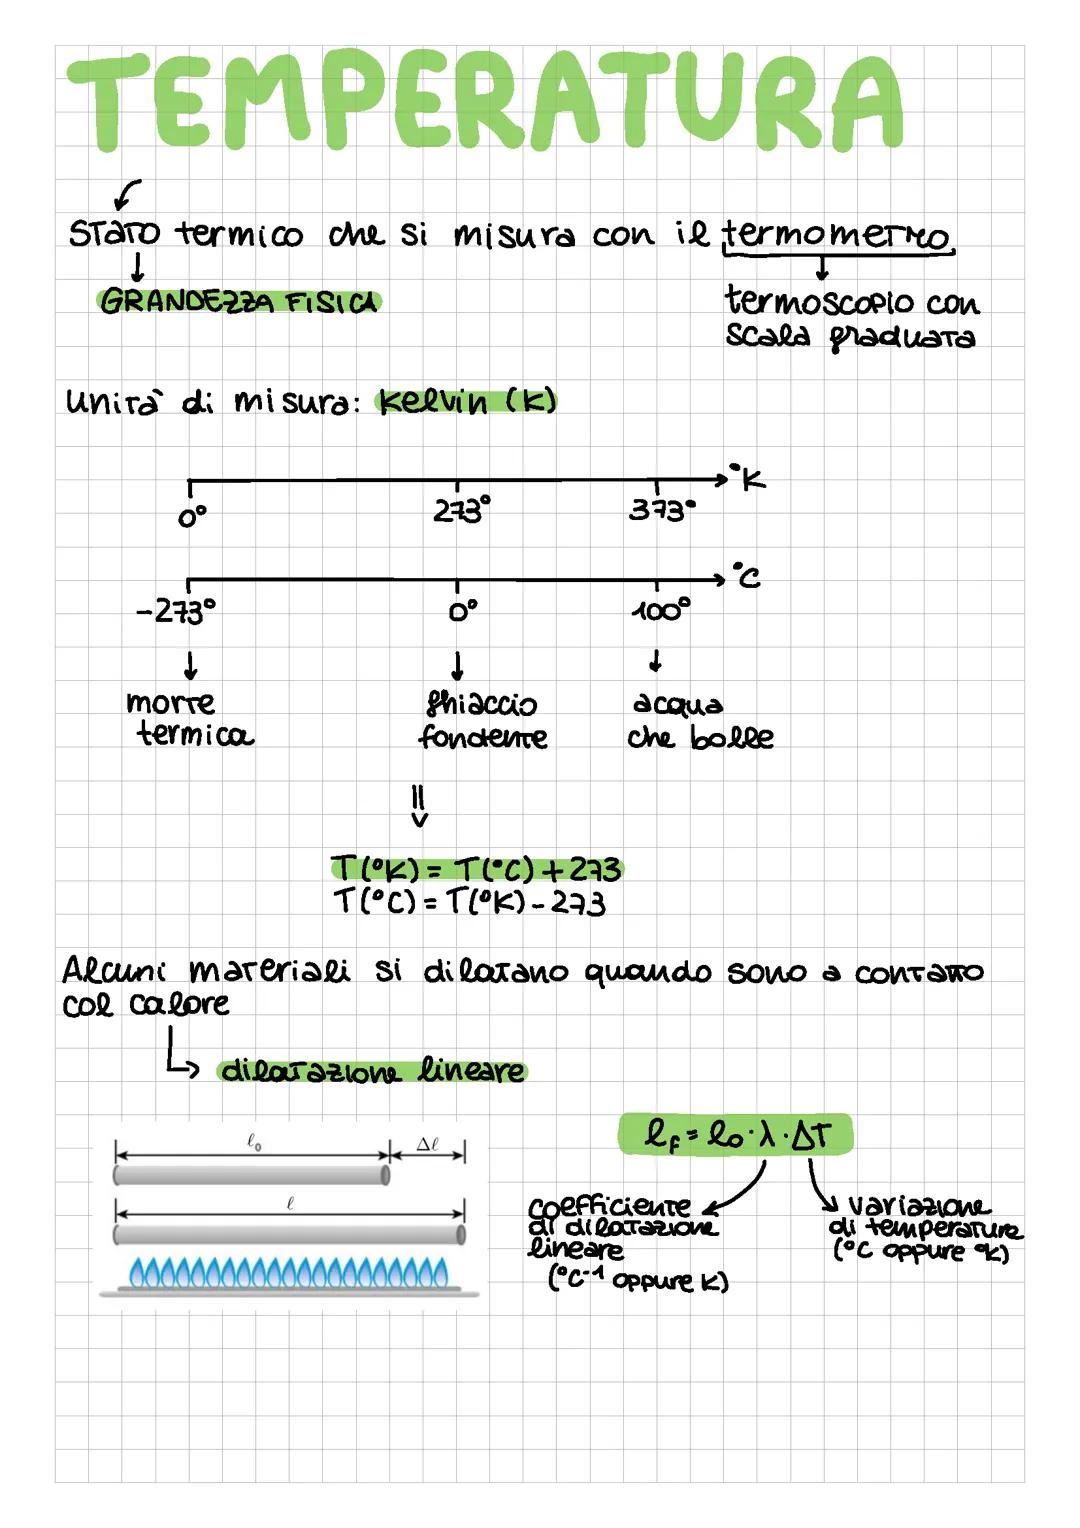 TEMPERATURA
Stato termico che si misura con il termometro
GRANDEZZA FISICA
termoscopio con
scala graduata
Unità di misura: Kelvin (K)
°K
0° 273° 373°
°C
-273° 0° 100°
morte ghiaccio acqua
termica fondente che bolle
T(°K) = T(°C) + 273
T(°C) = T(°K) - 273
Alcuni materiali si dilatano quando sono a contatto
col calore
dilatazione lineare
ℓ₀ Δℓ
ℓ
ℓf = ℓ₀·λ·ΔT
coefficiente
di dilatazione
lineare
(°C⁻¹ oppure K)
variazione
di temperatura
(°C oppure °K)